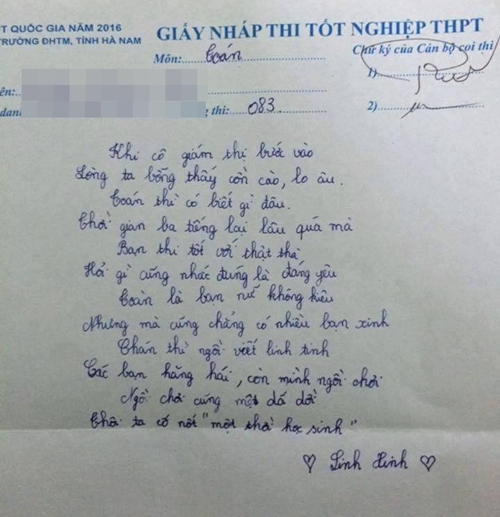 PT QUỐC GIA NĂM 2016
TRƯỜNG ĐHTM, TỈNH HÀ NAM
GIẤY NHÁP THI TỐT NGHIỆP THPT
Môn: Toán
Chữ ký của Cán bộ coi thi
1)
ên:
2)
danh
g thi: 083
Khi cô giám thị bước vào
Lòng ta bỗng thấy cồn cào, lo âu.
Toán thì có biết gì đâu.
Thời gian ba tiếng lại lâu quá mà
Bạn thi tốt với thật thà
Hỏi gì cũng nhắc đúng là đáng yêu
Toàn là bạn nữ không kiêu
Nhưng mà cũng chẳng có nhiều bạn xinh
Chán thì ngồi viết linh tinh
Các bạn hăng hái, còn mình ngồi chơi
Ngồi chơi cũng một đá dời
Cho ta có nốt "một thời học sinh"
♡ Linh Xinh ♡